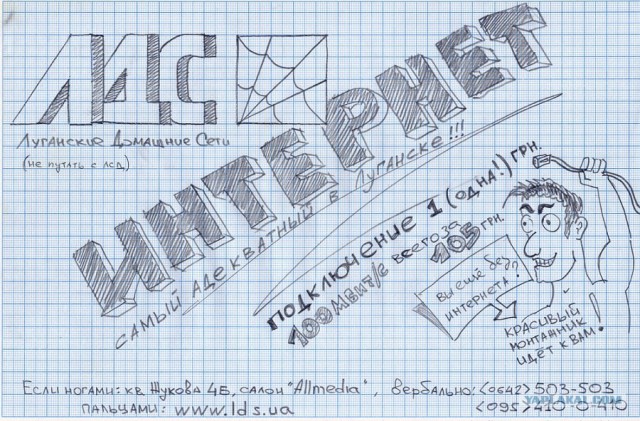 ЛДС
Луганские Домашние Сети
(не путать с лсд)
ИНТЕРНЕТ
самый адекватный в Луганске!!!
подключение 1 (одна!) грн.
100 Мбит/с всего за 105 грн.
Вы ещё без
интернета?
Красивый
монтажник
идёт к вам!
Если ногами: кв. Жукова 4Б, салон "Allmedia", вербально: (0642) 503-503
пальцами: www.lds.ua (095) 410-0-410
YAPLAKAL.COM